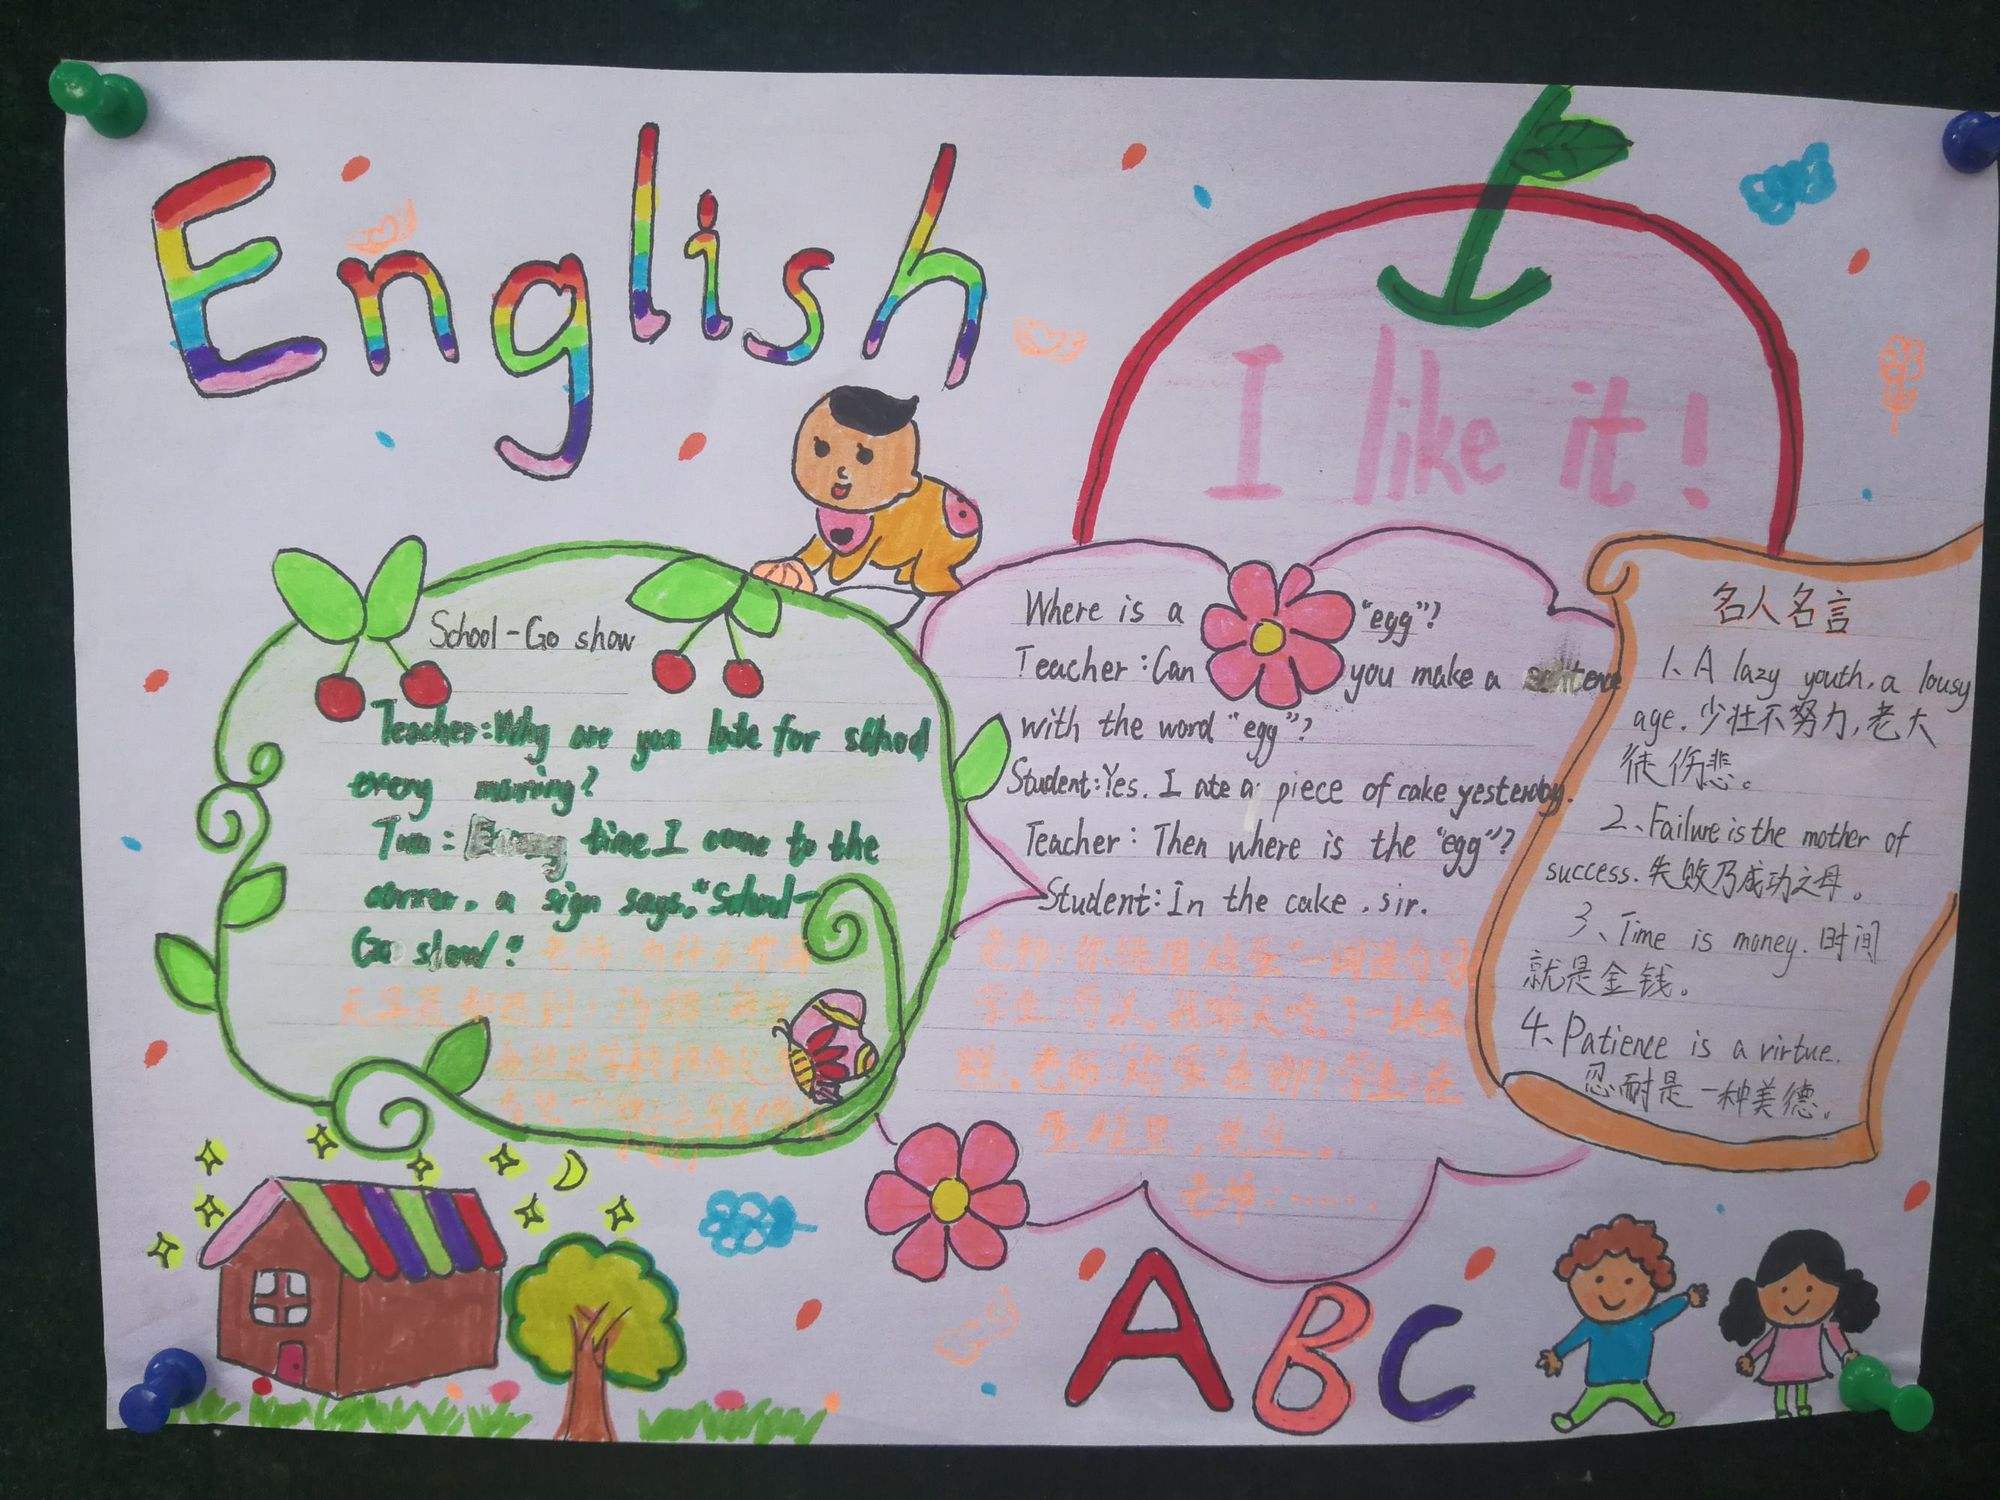 English
I like it!
School-Go show
Teacher: Why are you late for school
every morning?
Tom: Every time I come to the
corner, a sign says, "School-
Go slow".
老师:为什么你每
天早晨都迟到?汤姆:每
Where is a "egg"?
Teacher: Can you make a sentence
with the word "egg"?
Student: Yes. I ate a piece of cake yesterday.
Teacher: Then where is the "egg"?
Student: In the cake, sir.
老师:你能用"鸡蛋"一词造句吗?
学生:可以,我昨天吃了一块蛋
糕。老师:"鸡蛋"在哪?学生:在
蛋糕里,先生。
老师:......
名人名言
1、A lazy youth, a lousy
age. 少壮不努力,老大
徒伤悲。
2、Failure is the mother of
success. 失败乃成功之母。
3、Time is money. 时间
就是金钱。
4、Patience is a virtue.
忍耐是一种美德。
ABC